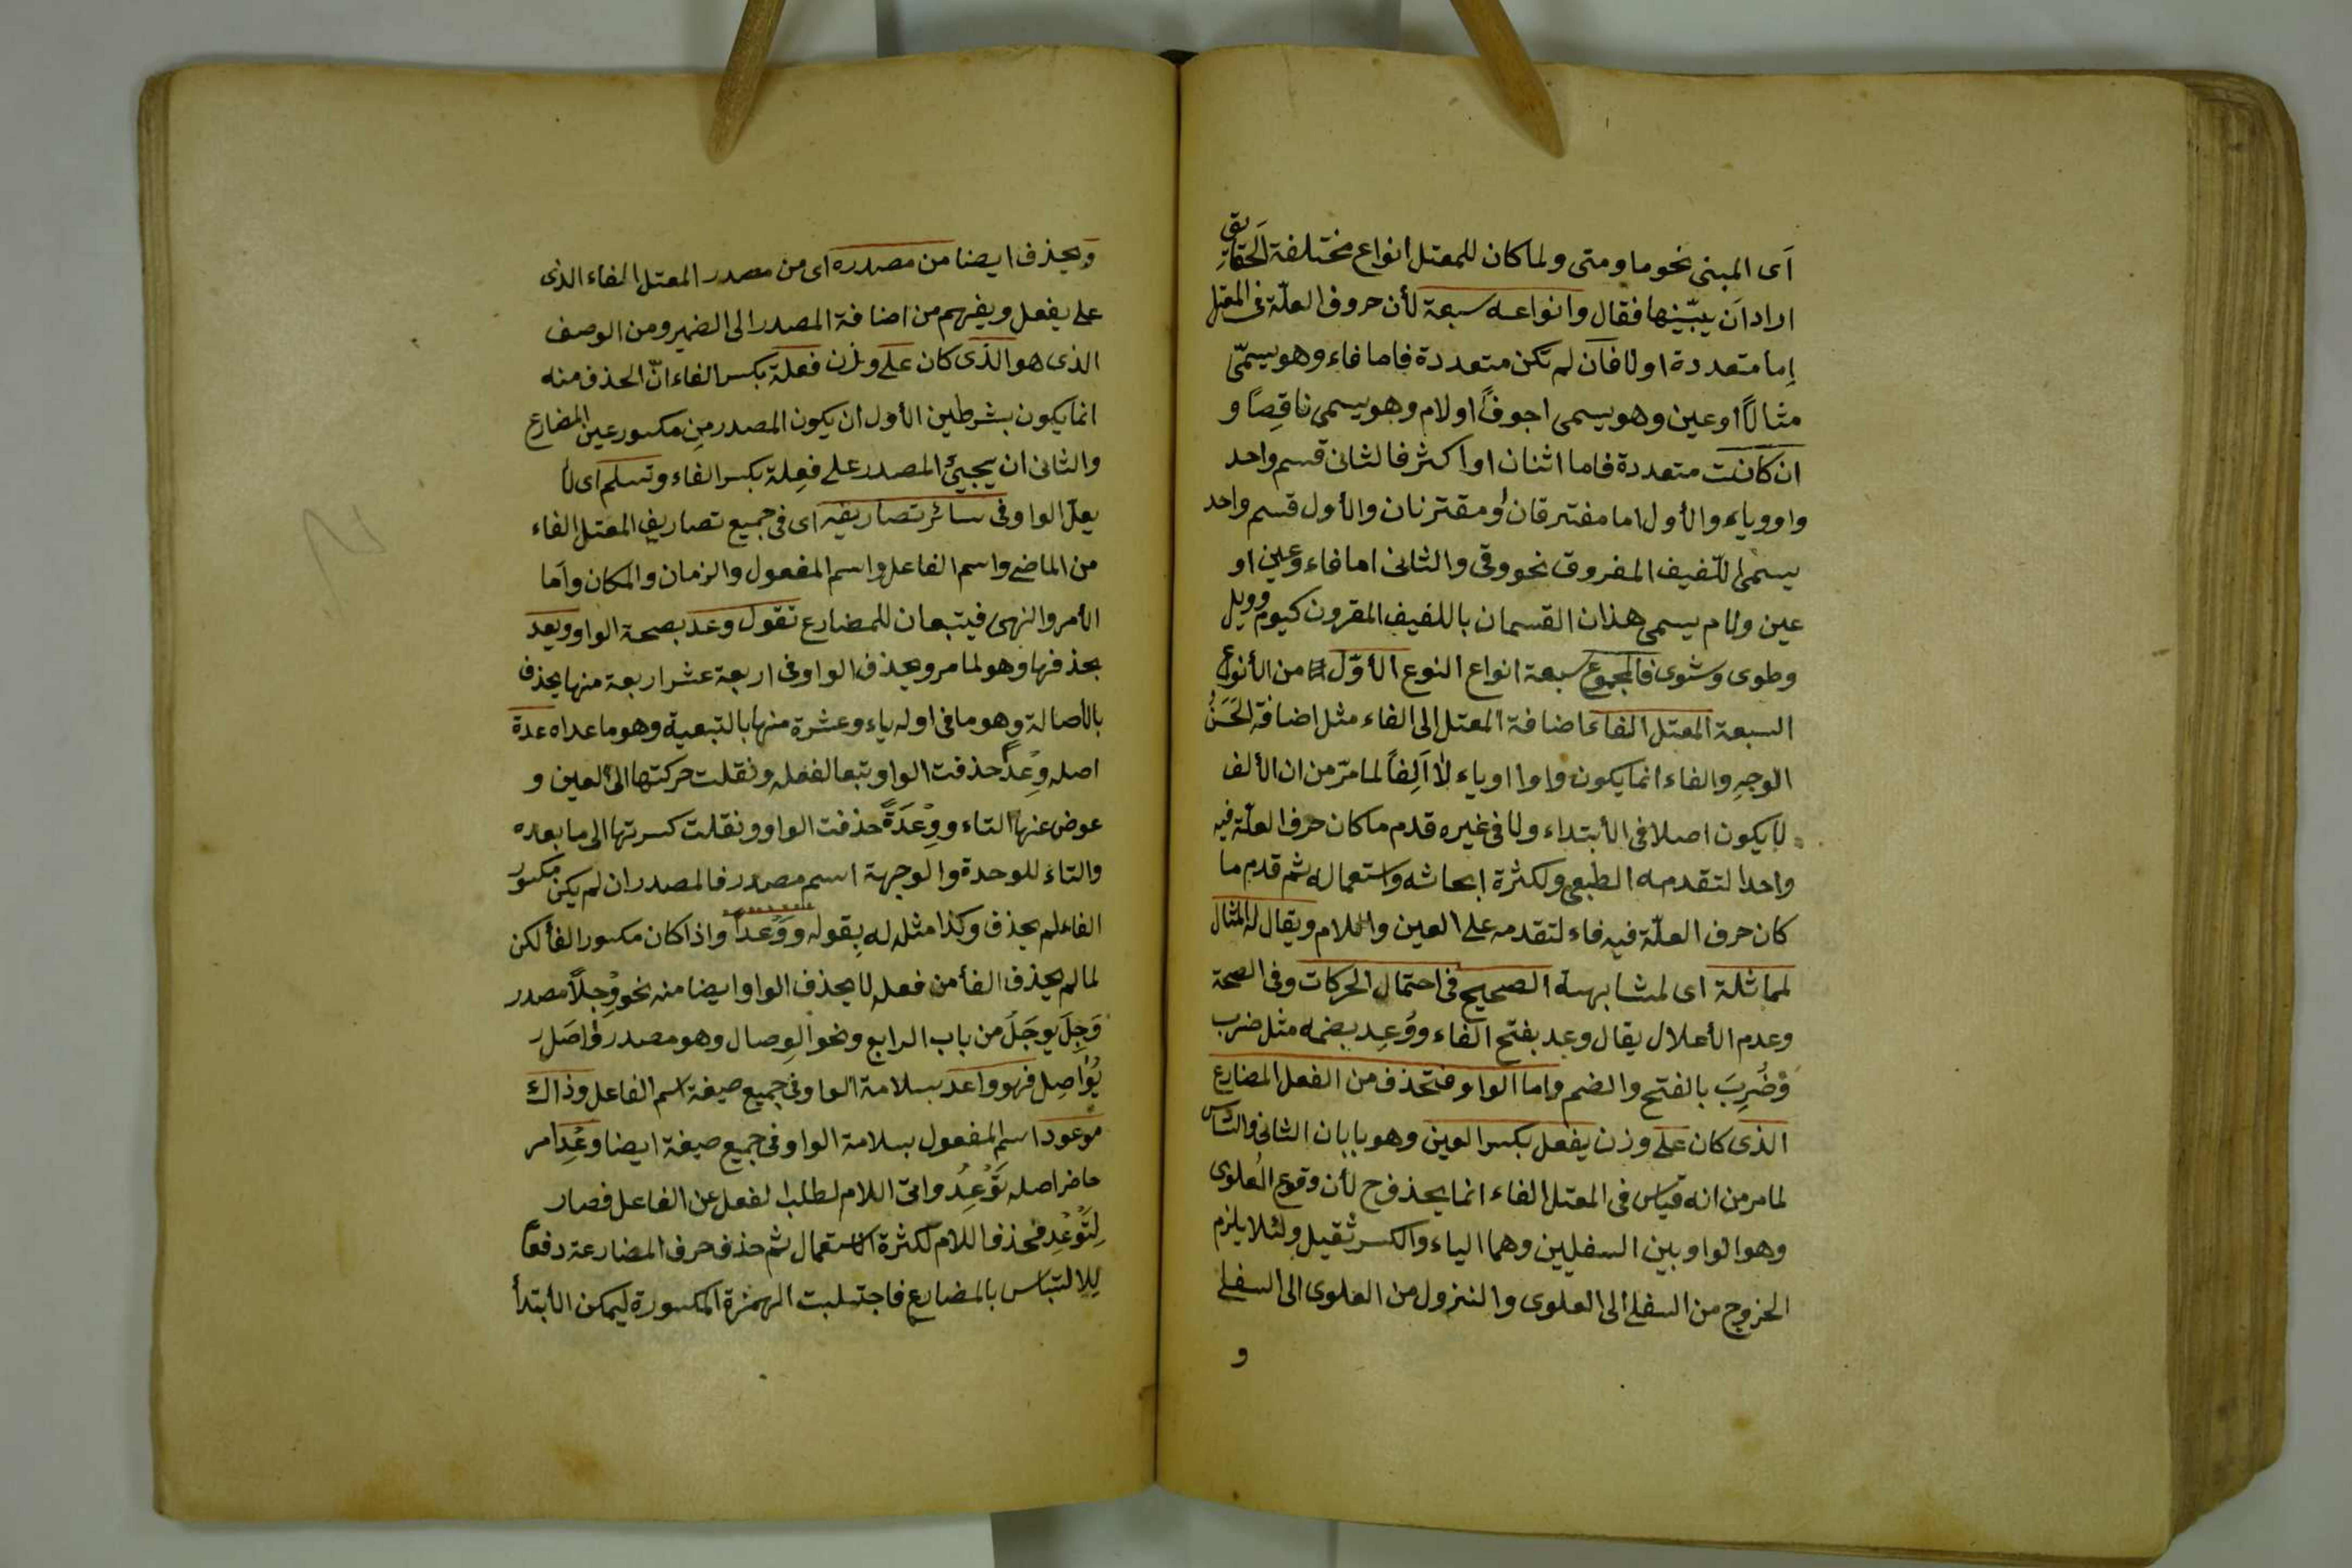 اى المبنى نحو ما ومتى ولما كان للمعتل انواع مختلفة الحقايق
اراد ان يبيّنها فقال وانواعه سبعة لأن حروف العلّة فى المعتل
إما متعددة اولا فان لم تكن متعددة فاما فاء وهو يسمّى
مثالاً او عين وهو يسمى اجوفاً او لام وهو يسمى ناقصًا و
ان كانت متعددة فاما اثنان او اكثر فالثانى قسم واحد
واو وياء والأول اما مفترقان او مقترنان والأول قسم واحد
يسمى اللّفيف المفروق نحو وقى والثانى اما فاء وعين او
عين ولام يسمى هذان القسمان باللفيف المقرون كيوم وويل
وطوى وشوى فالمجموع سبعة انواع النوع الأوّل من الأنواع
السبعة المعتل الفاء اضافة المعتل الى الفاء مثل اضافة الحَسَنُ
الوجهِ والفاء انما يكون واوا اوياء لا اَلِفاً لما مرّ من ان الألف
لا يكون اصلا فى الأبتداء ولا فى غيره قدم ما كان حرف العلّة فيه
واحدا لتقدمه الطبعى ولكثرة ابحاثه واستعماله ثم قدم ما
كان حرف العلّة فيه فاء لتقدمه على العين واللام ويقال له المثال
لمماثلة اى لمشابهته الصحيح فى احتمال الحركات وفى الصحة
وعدم الأعلال يقال وعد بفتح الفاء ووُعِد بضمه مثل ضرب
وضُرِبَ بالفتح والضم واما الواو فتحذف من الفعل المضارع
الذى كان على وزن يفعل بكسر العين وهو بابان الثانى والسادس
لما مر من انه قياس فى المعتل الفاء انما يحذف ح لأن وقوع العُلوى
وهو الواو بين السفليين وهما الياء والكسر ثقيل ولئلا يلزم
الخروج من السفلى الى العلوى والنزول من العلوى الى السفلى
و
ويحذف ايضا من مصدره اى من مصدر المعتل الفاء الذى
على يفعل ويفهم من اضافة المصدر الى الضمير ومن الوصف
الذى هو الذى كان على وزن فعلة بكسر الفاء انّ الحذف منه
انما يكون بشرطين الأول ان يكون المصدر من مكسور عين المضارع
والثانى ان يجيئ المصدر على فعِلة بكسر الفاء وتسلم اى لا
يعلّ الواو فى سائر تصاريفه اى فى جميع تصاريف المعتل الفاء
من الماضى واسم الفاعل واسم المفعول والزمان والمكان واما
الأمر والنهى فيتبعان للمضارع تقول وعد بصحة الواو ويعد
بحذفها وهو لما مر ويحذف الواو فى اربعة عشر اربعة منها يحذف
بالأصالة وهو ما فى اوله ياء وعشرة منها بالتبعية وهو ما عداه عدة
اصله وِعْدٌ حذفت الواو تبعا لفعله ونقلت حركتها الى العين و
عوض عنها التاء ووِعْدَةً حذفت الواو ونقلت كسرتها الى ما بعده
والتاء للوحدة والوجهة اسم مصدر فالمصدر ان لم يكن مكسور
الفاء لم يحذف وكذا مثله له بقوله ووَعْداً واذا كان مكسور الفأ لكن
لما لم يحذف الفأ من فعله لا يحذف الواو ايضا منه نحو وِجْلاً مصدر
وَجِلَ يوجَلُ من باب الرابع ونحو الوِصال وهو مصدر وَاصَل
يُوَاصِل فهو واعد بسلامة الواو فى جميع صيغة اسم الفاعل وذاك
موعود اسم المفعول بسلامة الواو فى جميع صيغة ايضا وعِدْ امر
حاضر اصله تَوْعِدُ واتى اللام لطلب الفعل عن الفاعل فصار
لِتَوْعِدْ فحذف اللام لكثرة الاستعمال ثم حذف حرف المضارعة دفعاً
للالتباس بالمضارع فاجتلبت الهمزة المكسورة ليمكن الأبتدأ